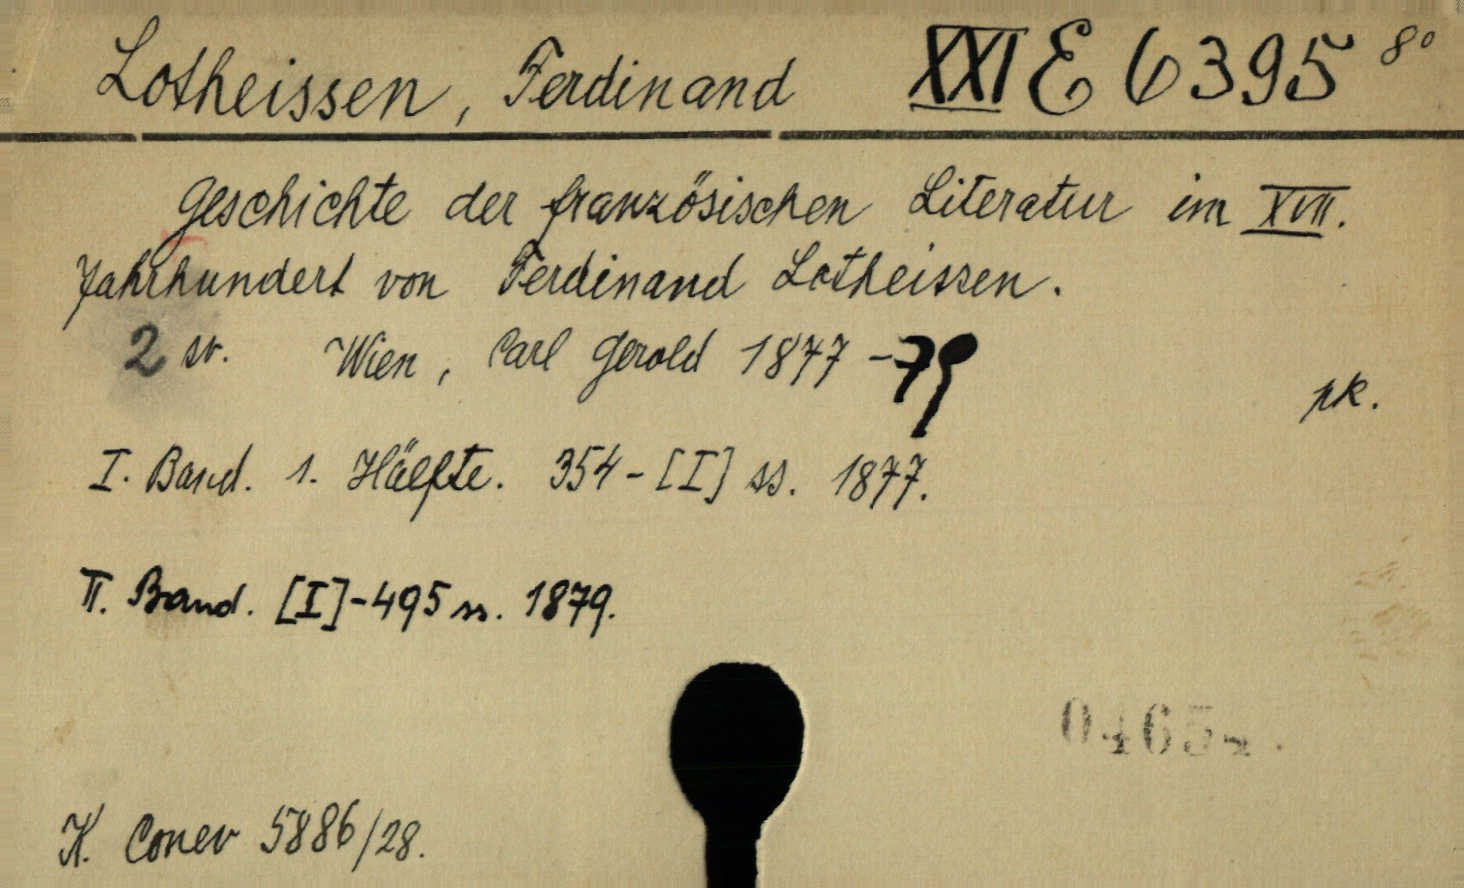 Lotheissen, Ferdinand XXI E 6395 8°
Geschichte der französischen Literatur im XVII.
Jahrhundert von Ferdinand Lotheissen.
2 sv. Wien, Carl Gerold 1877-79
pk.
I. Band. 1. Hälfte. 354-[I] ss. 1877.
II. Band. [I]-495 ss. 1879.
K. Conev 5886/28.